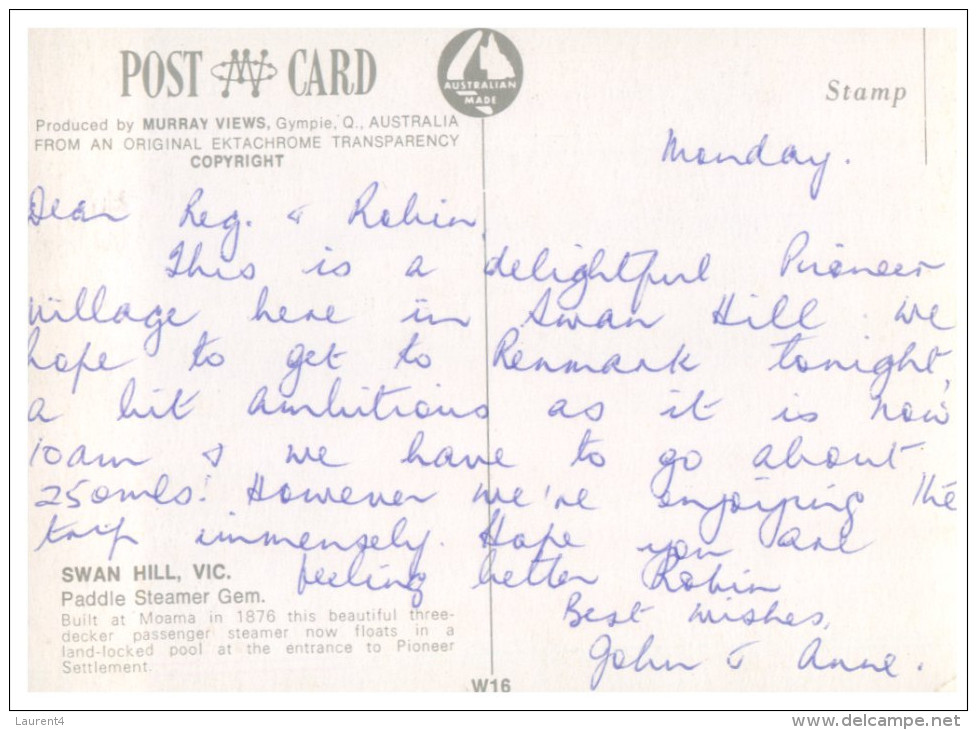 POST CARD
AUSTRALIAN
MADE
Stamp
Produced by MURRAY VIEWS, Gympie, Q., AUSTRALIA
FROM AN ORIGINAL EKTACHROME TRANSPARENCY
COPYRIGHT
Monday.
Dear Reg. & Robin,
This is a delightful Pioneer
village here in Swan Hill. We
hope to get to Renmark tonight,
a bit ambitious as it is now
10am & we have to go about
250mls! However we're enjoying the
trip immensely. Hope you are
feeling better Robin
Best wishes,
John & Anne.
SWAN HILL, VIC.
Paddle Steamer Gem.
Built at Moama in 1876 this beautiful three-
decker passenger steamer now floats in a
land-locked pool at the entrance to Pioneer
Settlement.
W16
Laurent4
www.delcampe.net